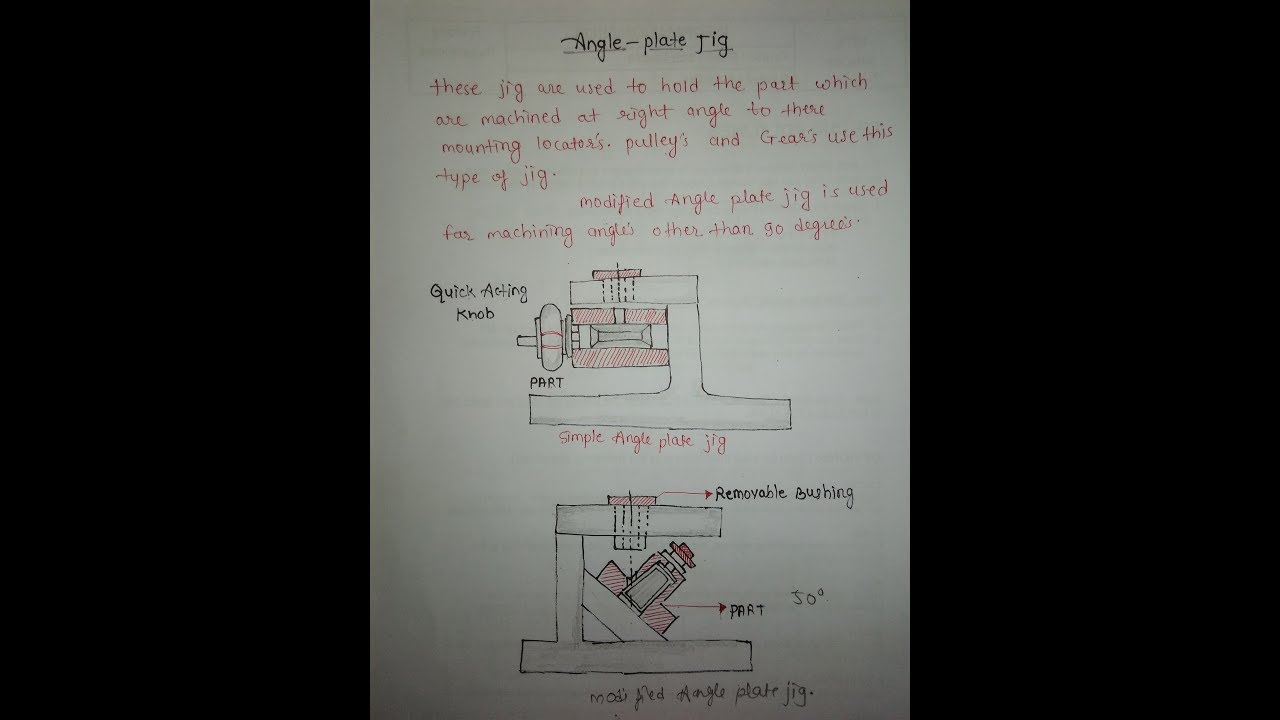 Angle-plate Jig
these jig are used to hold the part which
are machined at right angle to there
mounting locator's. pulley's and Gear's use this
type of jig.
modified Angle plate jig is used
for machining angle's other than 90 degree's.
Quick Acting
Knob
PART
Simple Angle plate jig
Removable Bushing
PART
50°
modified Angle plate jig.